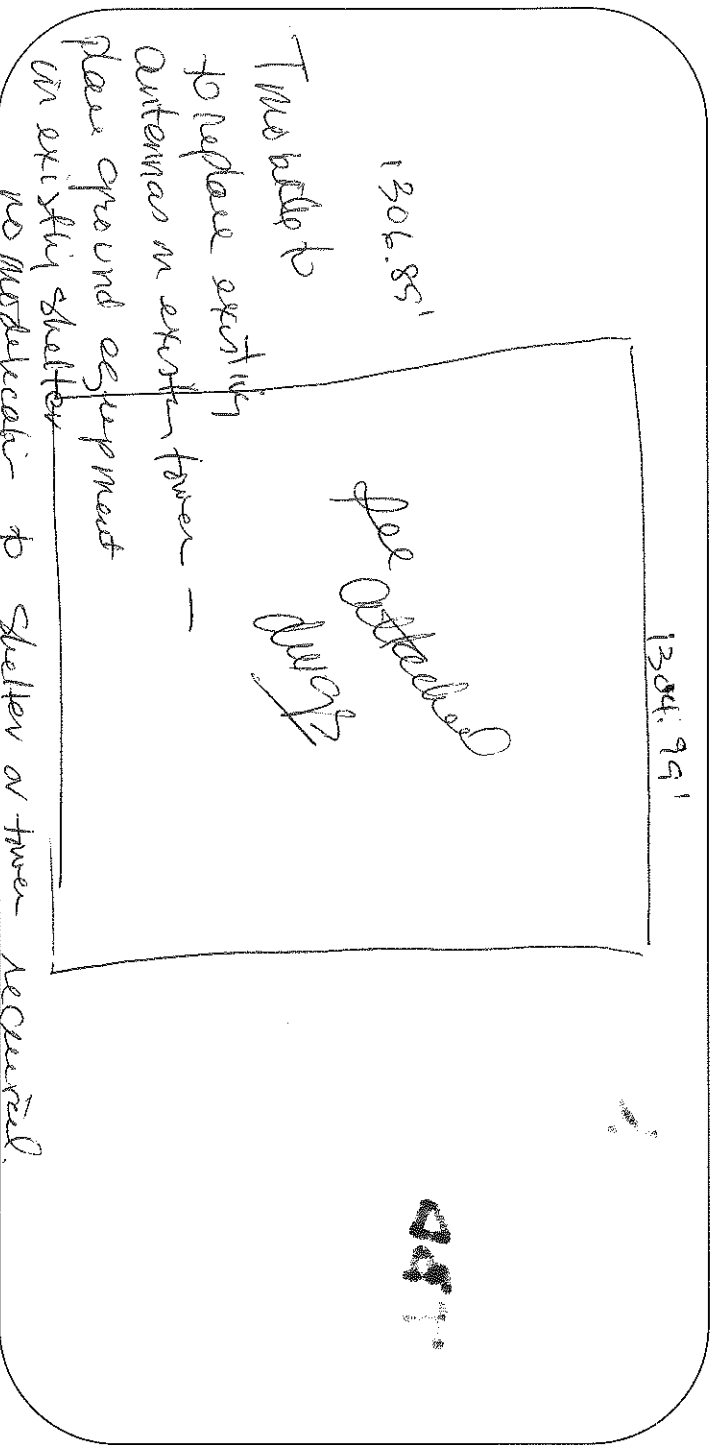 1304.99'
1306.85'
See
attached
dwgs
T Mobile to
to replace existing
antennas on existin tower —
place ground equipment
in existing shelter
no modification to shelter or tower required.